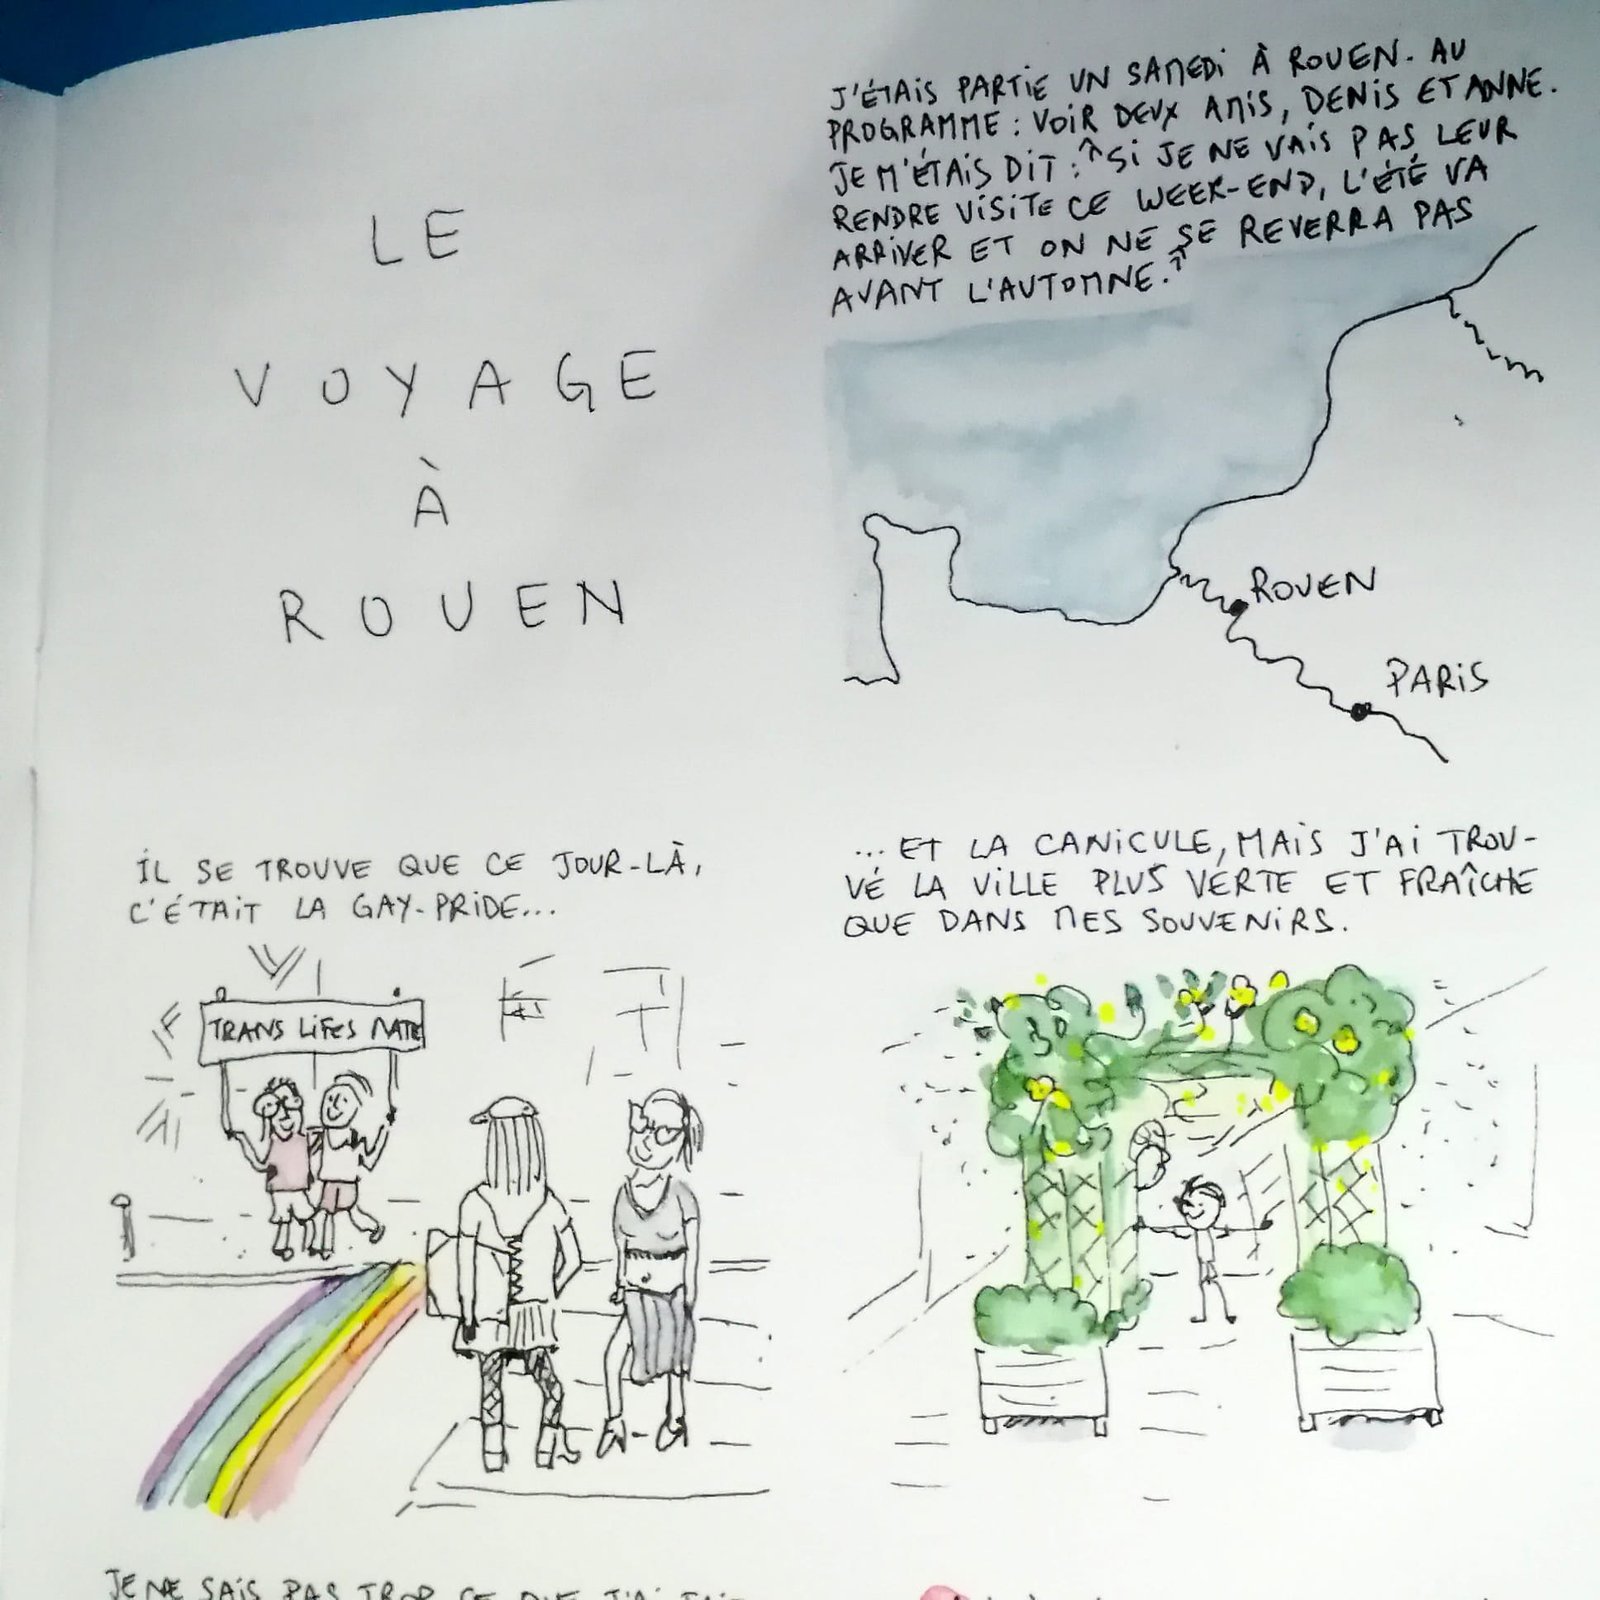 LE
VOYAGE
À
ROUEN
J'ÉTAIS PARTIE UN SAMEDI À ROUEN. AU
PROGRAMME : VOIR DEUX AMIS, DENIS ET ANNE.
JE M'ÉTAIS DIT : "SI JE NE VAIS PAS LEUR
RENDRE VISITE CE WEEK-END, L'ÉTÉ VA
ARRIVER ET ON NE SE REVERRA PAS
AVANT L'AUTOMNE."
ROUEN
PARIS
IL SE TROUVE QUE CE JOUR-LÀ,
C'ÉTAIT LA GAY-PRIDE...
TRANS LIFES MATE
... ET LA CANICULE, MAIS J'AI TROU-
VÉ LA VILLE PLUS VERTE ET FRAÎCHE
QUE DANS MES SOUVENIRS.
JE NE SAIS PAS TROP CE QUE J'AI